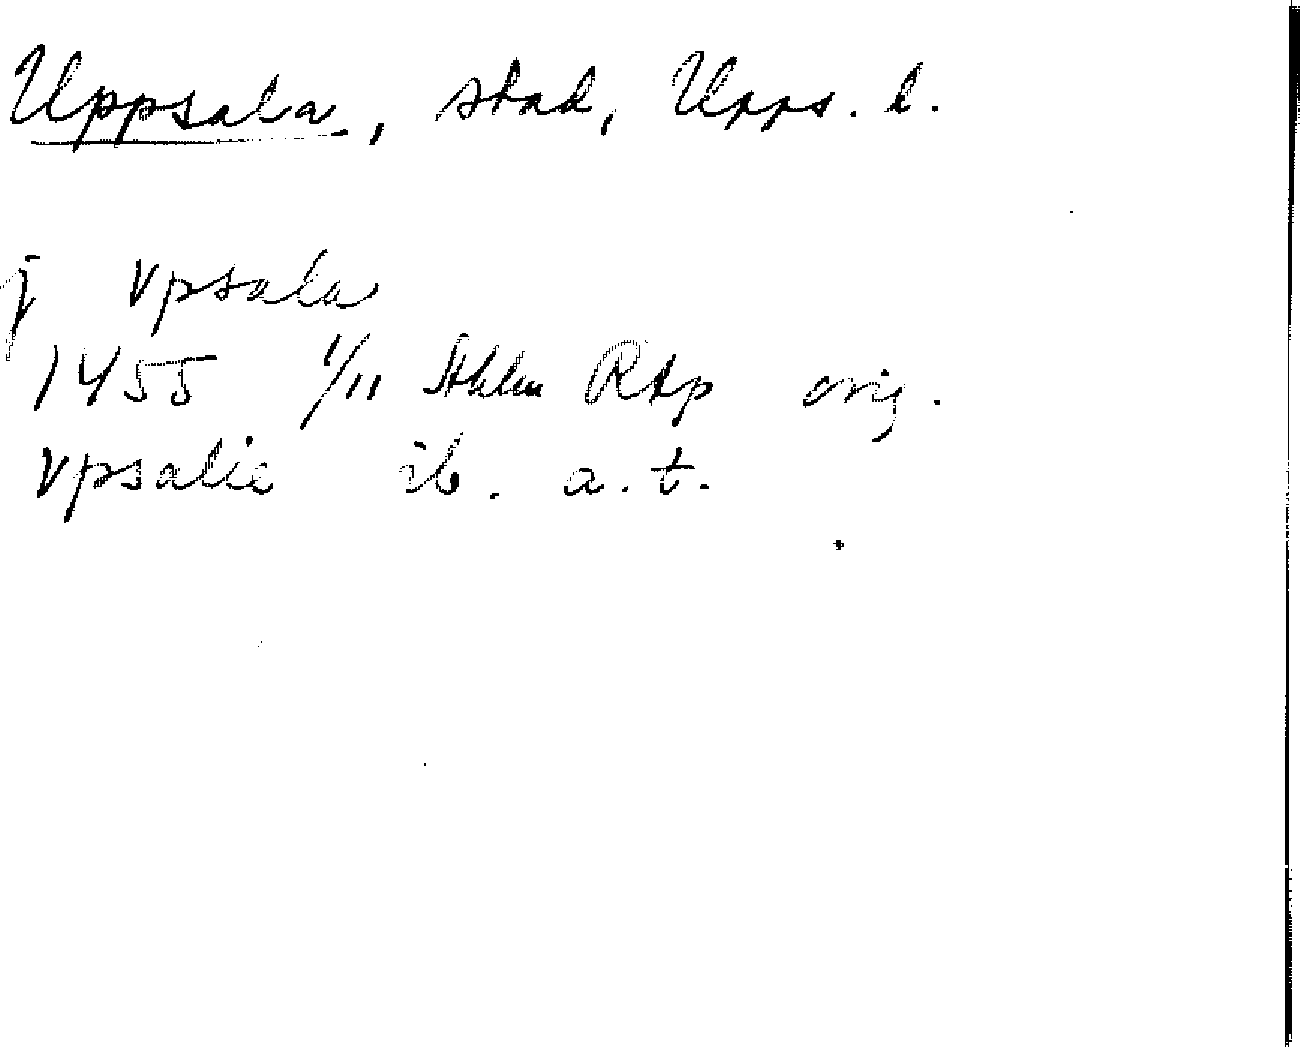 Uppsala, stad, Upps. l.
j vpsala
1455 1/11 Sthlm RAp orig.
vpsalie ib. a.t.